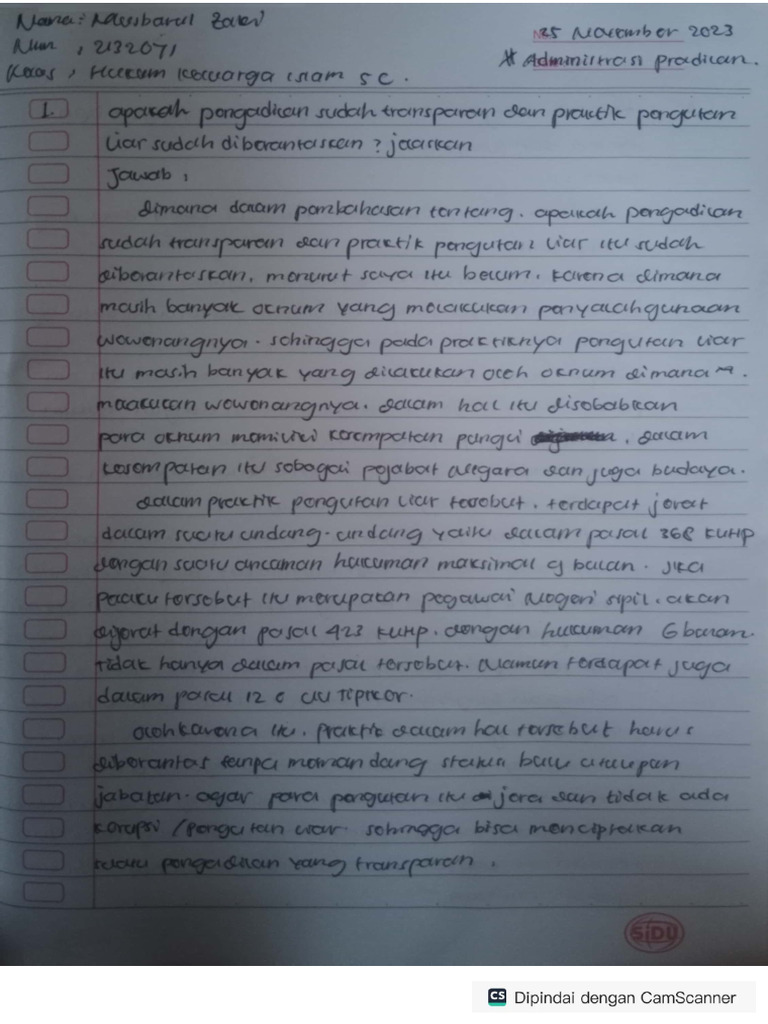 Nama: Musbarul Zaki
25 November 2023
Nim : 2132071
* Administrasi pradilan.
Kelas : Hukum keluarga islam 5C.
1. apakah pengadilan sudah transparan dan praktik pengutan
liar sudah diberantaskan ? jelaskan
Jawab :
Dimana dalam pembahasan tentang. apakah pengadilan
sudah transparan dan praktik pengutan liar itu sudah
diberantaskan. menurut saya itu belum. karena dimana
masih banyak oknum yang melakukan penyalahgunaan
wewenangnya. sehingga pada praktiknya pengutan liar
itu masih banyak yang dilakukan oleh oknum dimana".
melakukan wewenangnya. dalam hal itu disebabkan
para oknum memiliki kesempatan pungli. dalam
kesempatan itu sebagai pejabat negara dan juga budaya.
dalam praktik pengutan liar tersebut. terdapat jerat
dalam suatu undang-undang yaitu dalam pasal 368 KUHP
dengan suatu ancaman hukuman maksimal 9 bulan. Jika
pelaku tersebut itu merupakan pegawai Negeri sipil. akan
dijerat dengan pasal 423 KUHP. dengan hukuman 6 bulan.
tidak hanya dalam pasal tersebut. Namun terdapat juga
dalam pasal 12 e UU Tipikor.
oleh karena itu. praktik dalam hal tersebut harus
diberantas tanpa memandang status baik ataupun
jabatan. agar para pengutan itu jera dan tidak ada
korupsi / pengutan liar. sehingga bisa menciptakan
suatu pengadilan yang transparan.
SIDU
CS Dipindai dengan CamScanner